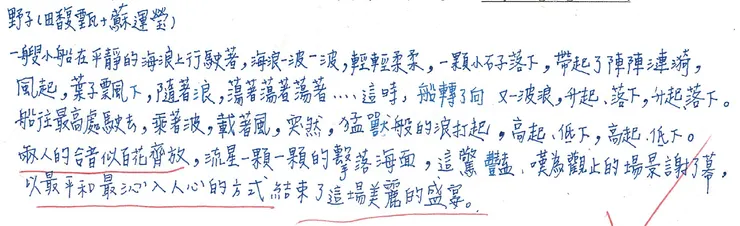 野子(田馥甄+蘇運瑩)
一艘小船在平靜的海浪上行駛著,海浪一波一波,輕輕柔柔,一顆小石子落下,帶起了陣陣漣漪,
風起,葉子飄下,隨著浪,蕩著蕩著蕩著....這時,船轉了向 又一波浪,升起、落下,升起落下。
船往最高處駛去,乘著波,載著風,突然,猛獸般的浪打起,高起、低下,高起、低下。
兩人的合音似百花齊放,流星一顆一顆的擊落海面,這驚豔、嘆為觀止的場景謝了幕,
以最平和最沁入人心的方式結束了這場美麗的盛宴。